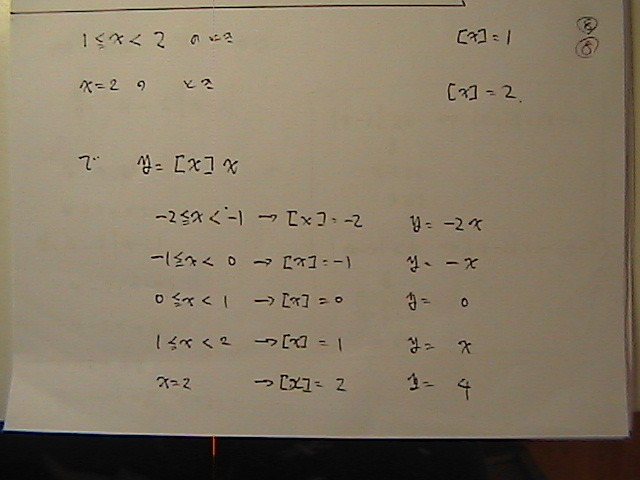 1 ≦ x < 2 のとき [x] = 1
x = 2 の とき [x] = 2.
で y = [x] x
-2 ≦ x < -1 → [x] = -2 y = -2x
-1 ≦ x < 0 → [x] = -1 y = -x
0 ≦ x < 1 → [x] = 0 y = 0
1 ≦ x < 2 → [x] = 1 y = x
x = 2 → [x] = 2 y = 4